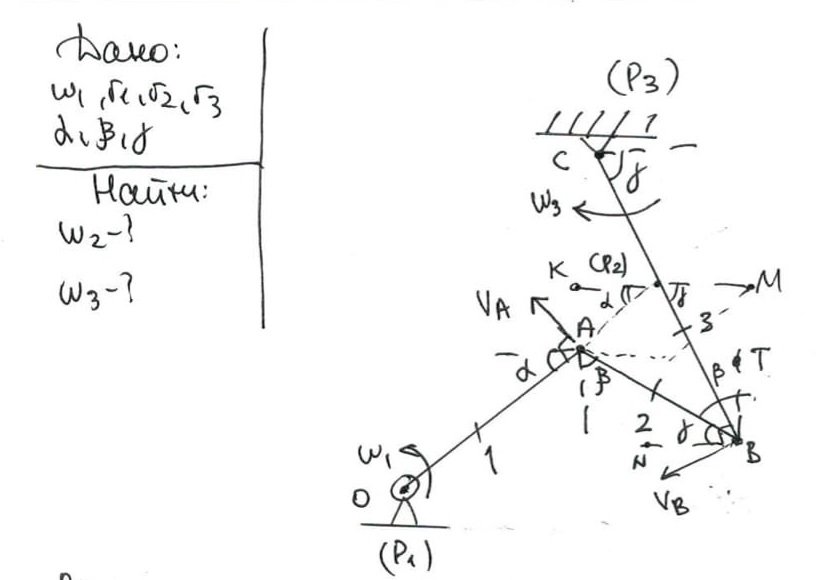 Дано:
ω₁, r₁, r₂, r₃
α, β, γ
Найти:
ω₂-?
ω₃-?
(P₃)
C
γ
ω₃
K
(P₂)
α
γ
M
V_A
A
3
α
β
β
T
2
γ
N
B
ω₁
1
V_B
O
(P₁)